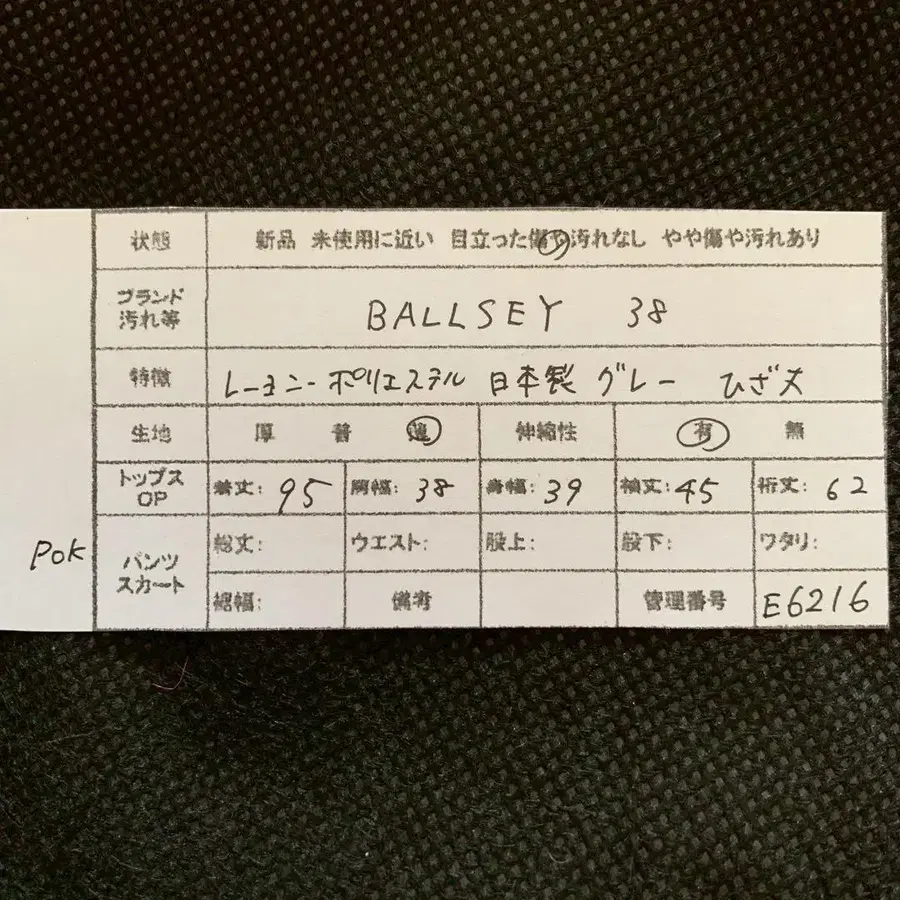 状態 新品 未使用に近い 目立った傷や汚れなし やや傷や汚れあり
ブランド
汚れ等
BALLSEY 38
特徴 レーヨン-ポリエステル 日本製 グレー ひざ丈
生地 厚 普 薄 伸縮性 有 無
トップス
OP
着丈: 95 肩幅: 38 身幅: 39 袖丈: 45 裄丈: 62
Pok
パンツ
スカート
総丈: ウエスト: 股上: 股下: ワタリ:
裾幅: 備考 管理番号 E6216